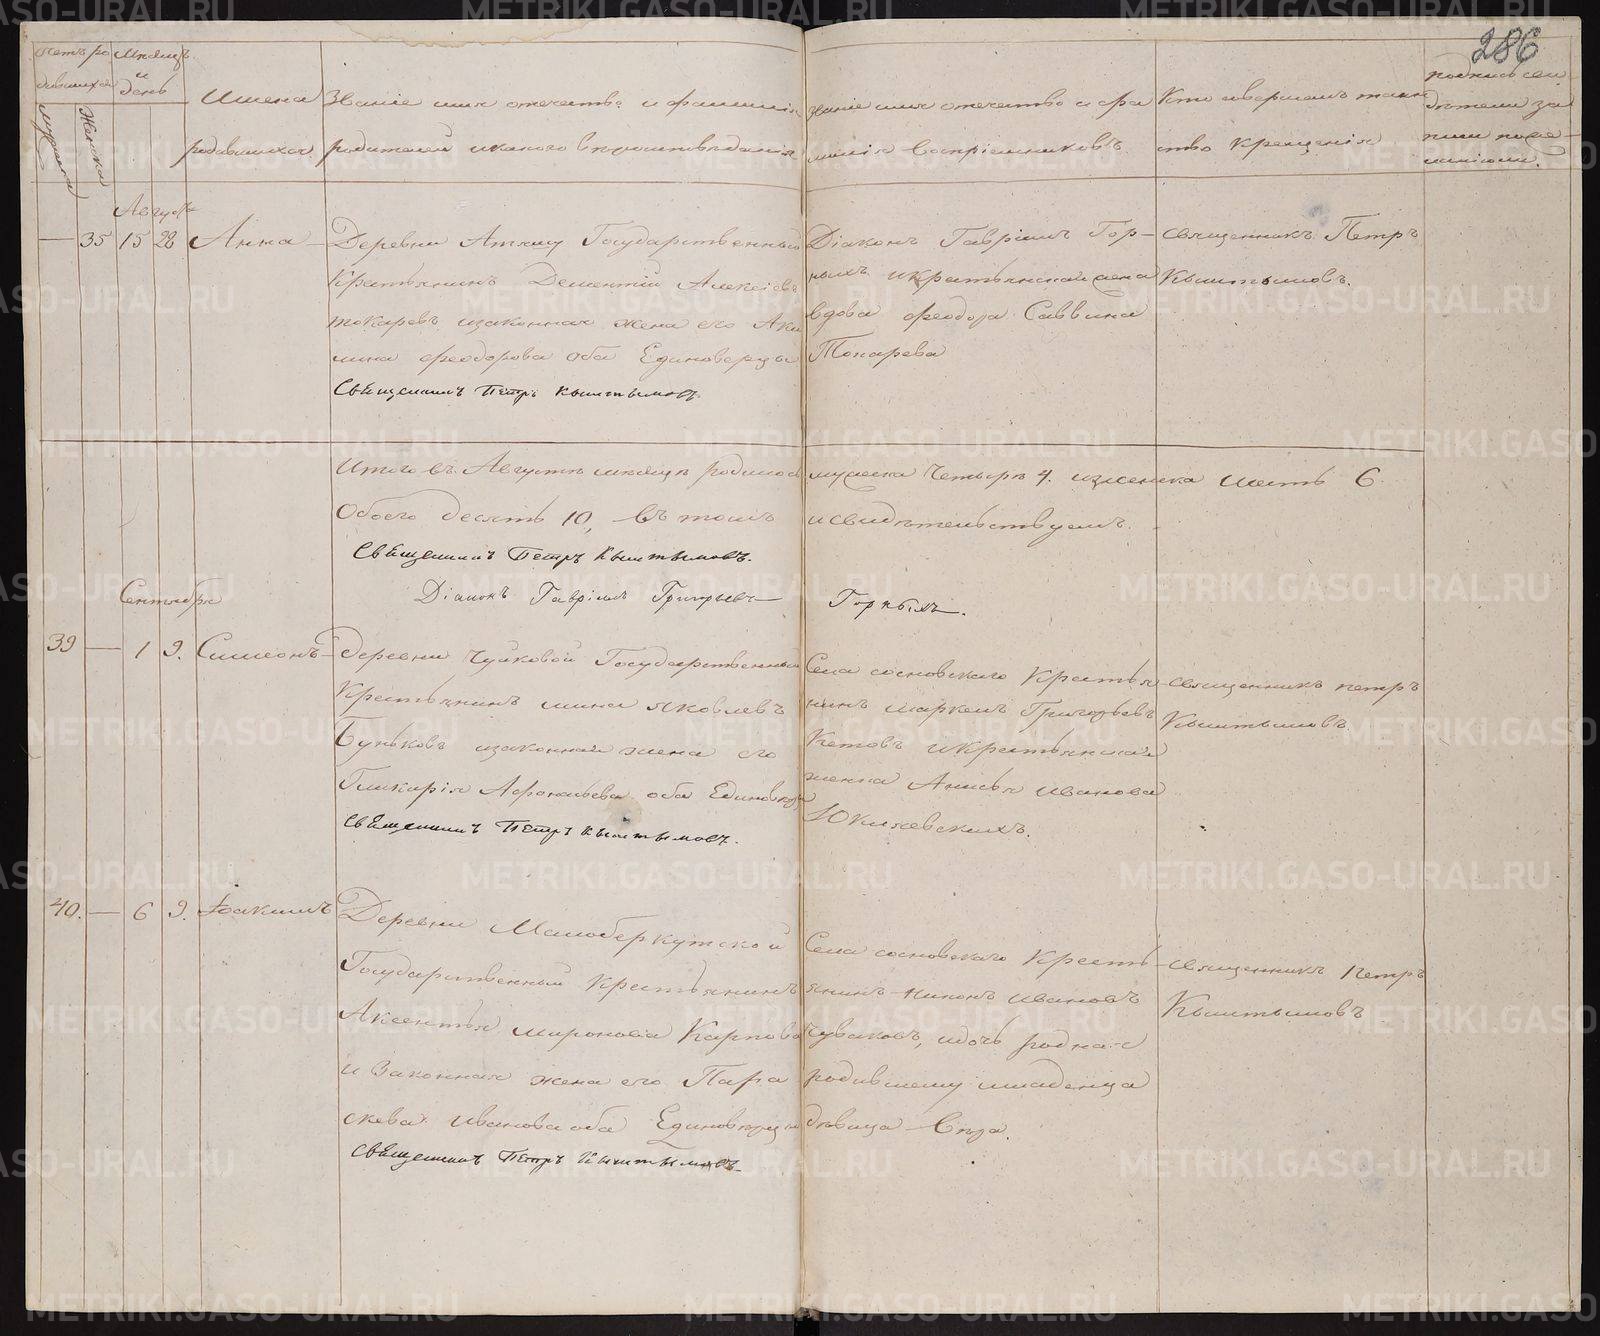 286
Счетъ родившихся
Мѣсяцъ и день
мужска
женска
Имена родившихся.
Званіе имя отечество и фамилія
родителей и какого вѣроисповѣданія
Званіе имя отечество и фамилія Воспріемниковъ.
Кто совершалъ таинство крещенія
Августа
35 15 28 Анна
Деревни Государственный
Крестьянинъ Дементій Алексѣевъ
токаревъ и законная жена его Аки
лина феодорова оба Единоверцы
Священникъ Петръ Кыштымовъ.
Діаконъ Гавріилъ Гор-
ныхъ и крестьянская жена
вдова феодора Саввина
Токарева
Священникъ Петръ
Кыштымовъ.
Итого въ Августѣ мѣсяцѣ родилось мужска четыре 4. и женска шесть 6
Обоего десять 10, въ томъ и свидѣтельствуемъ.
Священникъ Петръ Кыштымовъ.
Діаконъ Гавріилъ Григорьевъ Горныхъ.
Сентября
39 1 9. Симеонъ
деревни Чуйковой Государственный
Крестьянинъ мина яковлевъ
Буньковъ и законная жена его
Гликирія Афонасьева оба Единовѣрцы
Священникъ Петръ Кыштымовъ.
Села сосновскаго Крестья
нинъ маркелъ Григорьевъ
Кетовъ и Крестьянская
женка Анисья Иванова
Священникъ петръ
Кыштымовъ.
40. 6 9. Іоакимъ
Деревни Малоберкутской
Государственный Крестьянинъ
Аксентья миронова Карпова
и Законная жена его Пара
скева Иванова оба Единовѣрцы
Священникъ Петръ Кыштымовъ
Села сосновскаго Кресть
янинъ никонъ Ивановъ
Чуваковъ, и дочь родная
родившему младенца
дѣвица
Священникъ Петръ
Кыштымовъ
METRIKI.GASO-URAL.RU